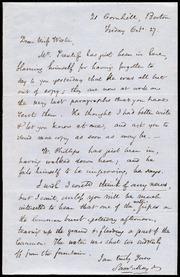 21 Cornhill, Boston
Friday Oct. 27.
Dear Miss Weston,
Mr. has just been in here,
blaming himself for having forgotten to
say to you yesterday that he was all but
out of copy; they are now at work on
the very last paragraphs that you have
sent them. He thought I had better write
& let you know at once, and to
send more copy, as soon as may be.
Mr. Phillips has just been in,
having walked down here; and he
felt himself to be improving, he says.
I wish I could think of any news,
but I cannot, unless you will be much
interested to hear that one of the Pipes on
the Common burst yesterday afternoon,
tearing up the grass & flooding a part of the
Common. The water was shut off
from the fountain.
I am truly Yours
Saml. May Jr.